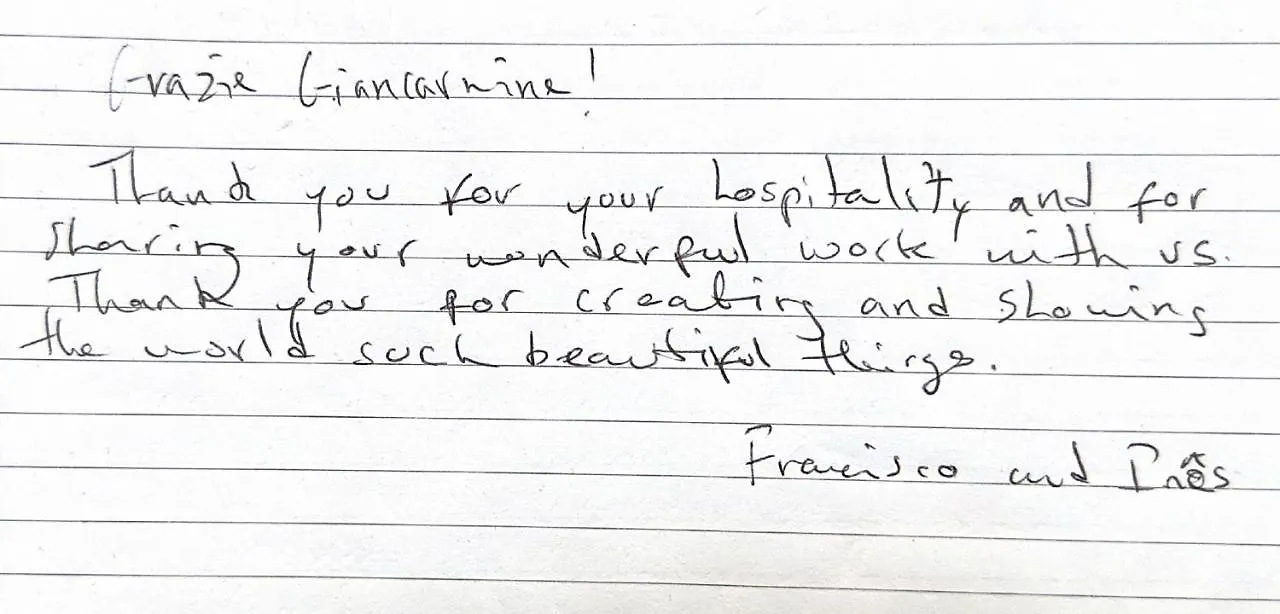 Grazie Giancarmine!
Thank you for your hospitality and for
sharing your wonderful work with us.
Thank you for creating and showing
the world such beautiful things.
Francisco and Inês